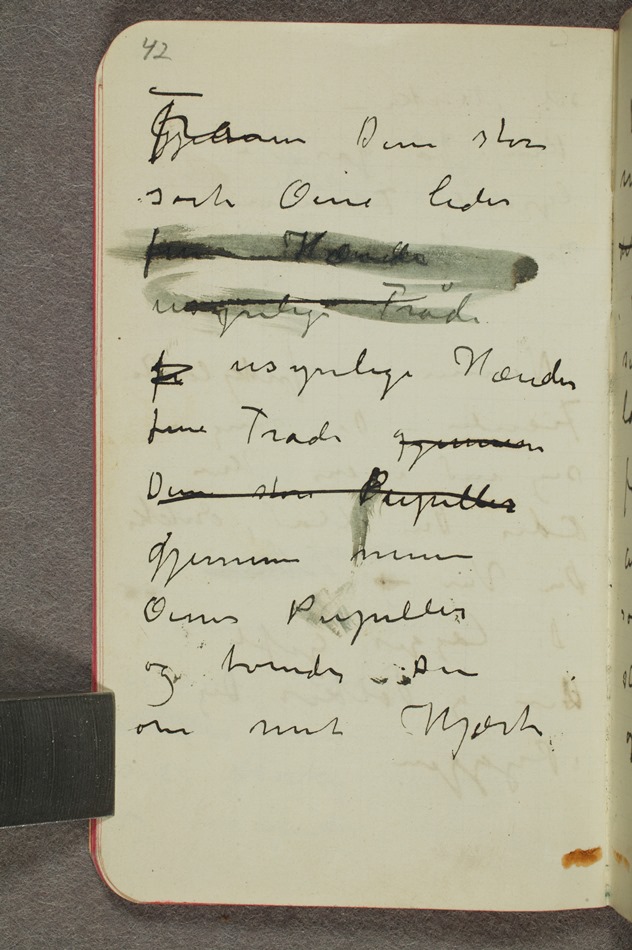 42
Gjennem Dine store
sorte Øine leder
fine Hænder
usynlige Tråde
fi usynlige Hænder
fine Trade gjennem
Dine store Pupiller
gjennem mine
Øines Pupiller
og binder dem
om mit Hjærte